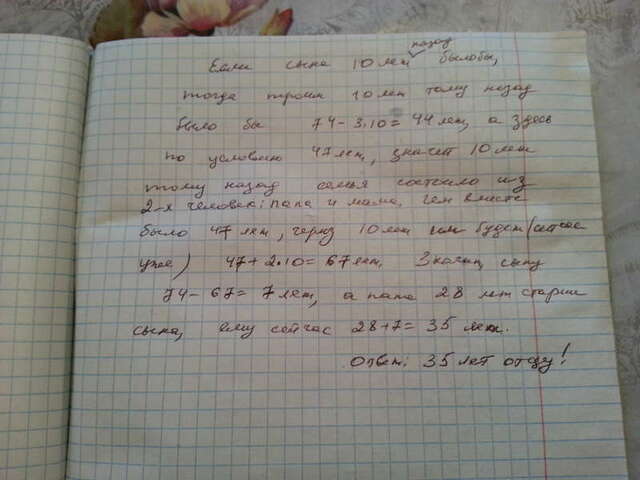 Если сына 10 лет назад было бы,
тогда троим 10 лет тому назад
было бы 74-3·10=44 лет, а здесь
по условию 47 лет, значит 10 лет
тому назад семья состояло из
2-х человек: папа и мама, им вместе
было 47 лет, через 10 лет им будет (сейчас
уже) 47+2·10=67 лет. Значит сыну
74-67=7 лет, а папа 28 лет старше
сына, ему сейчас 28+7=35 лет.
Ответ: 35 лет отцу!